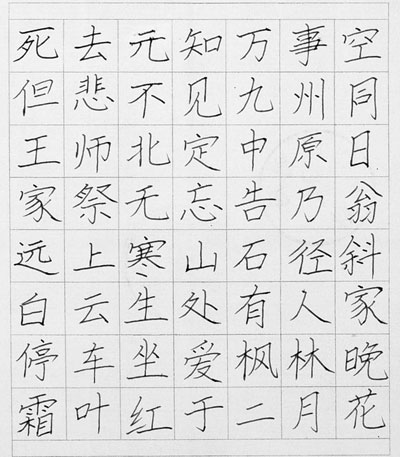 死去元知万事空
但悲不见九州同
王师北定中原日
家祭无忘告乃翁
远上寒山石径斜
白云生处有人家
停车坐爱枫林晚
霜叶红于二月花